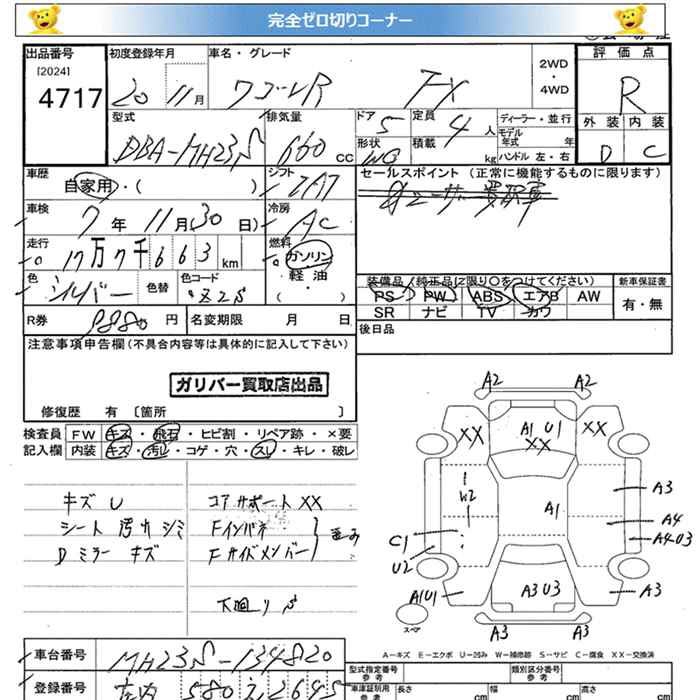 完全ゼロ切りコーナー
出品番号 初度登録年月 車名・グレード 2WD・4WD 評価点
[2024]
4717 20 11月 ワゴンR FX R
型式 排気量 ドア 定員 ディーラー・並行 外装 内装
DBA-MH23S 660 CC 5 4人 モデル年式 年 D C
形状 積載 kg ハンドル 左・右
WG
車歴 自家用・( ) シフト セールスポイント (正常に機能するものに限ります)
車検 7年 11月(30日) 冷房 AC
走行 17万7千663km 燃料 ガソリン・軽油・( )
色 シルバー 色替 色コード Z2S
装備品(純正品に限り○をつけてください) 新車保証書
PS PW ABS エアB AW 有・無
SR ナビ TV カワ
R券 9880円 名変期限 月 日 後日品
注意事項申告欄(不具合内容等は具体的に記入して下さい)
ガリバー買取店出品
修復歴 有 [箇所 ]
検査員 FW キズ・飛石・ヒビ割・リペア跡・×要
記入欄 内装 キズ・汚レ・コゲ・穴・スレ・キレ・破レ
キズ U コアサポート XX
シート 汚れ シミ Fインパネ 歪み
Dミラー キズ Fサイドメンバー
下廻り S
A2 A2
XX A1 U1 XX XX
W2 A1 A3
A4
C1 A4U3
U2
A1U1 A3U3 A3
スペア A3 A3
A-キズ E-エクボ U-凹み W-補修跡 S-サビ C-腐食 XX-交換済
車台番号 MH23S-134820 型式指定番号参考 類別区分番号参考
登録番号 580 2645 車庫証明用参考 長さ cm 幅 cm 高さ cm